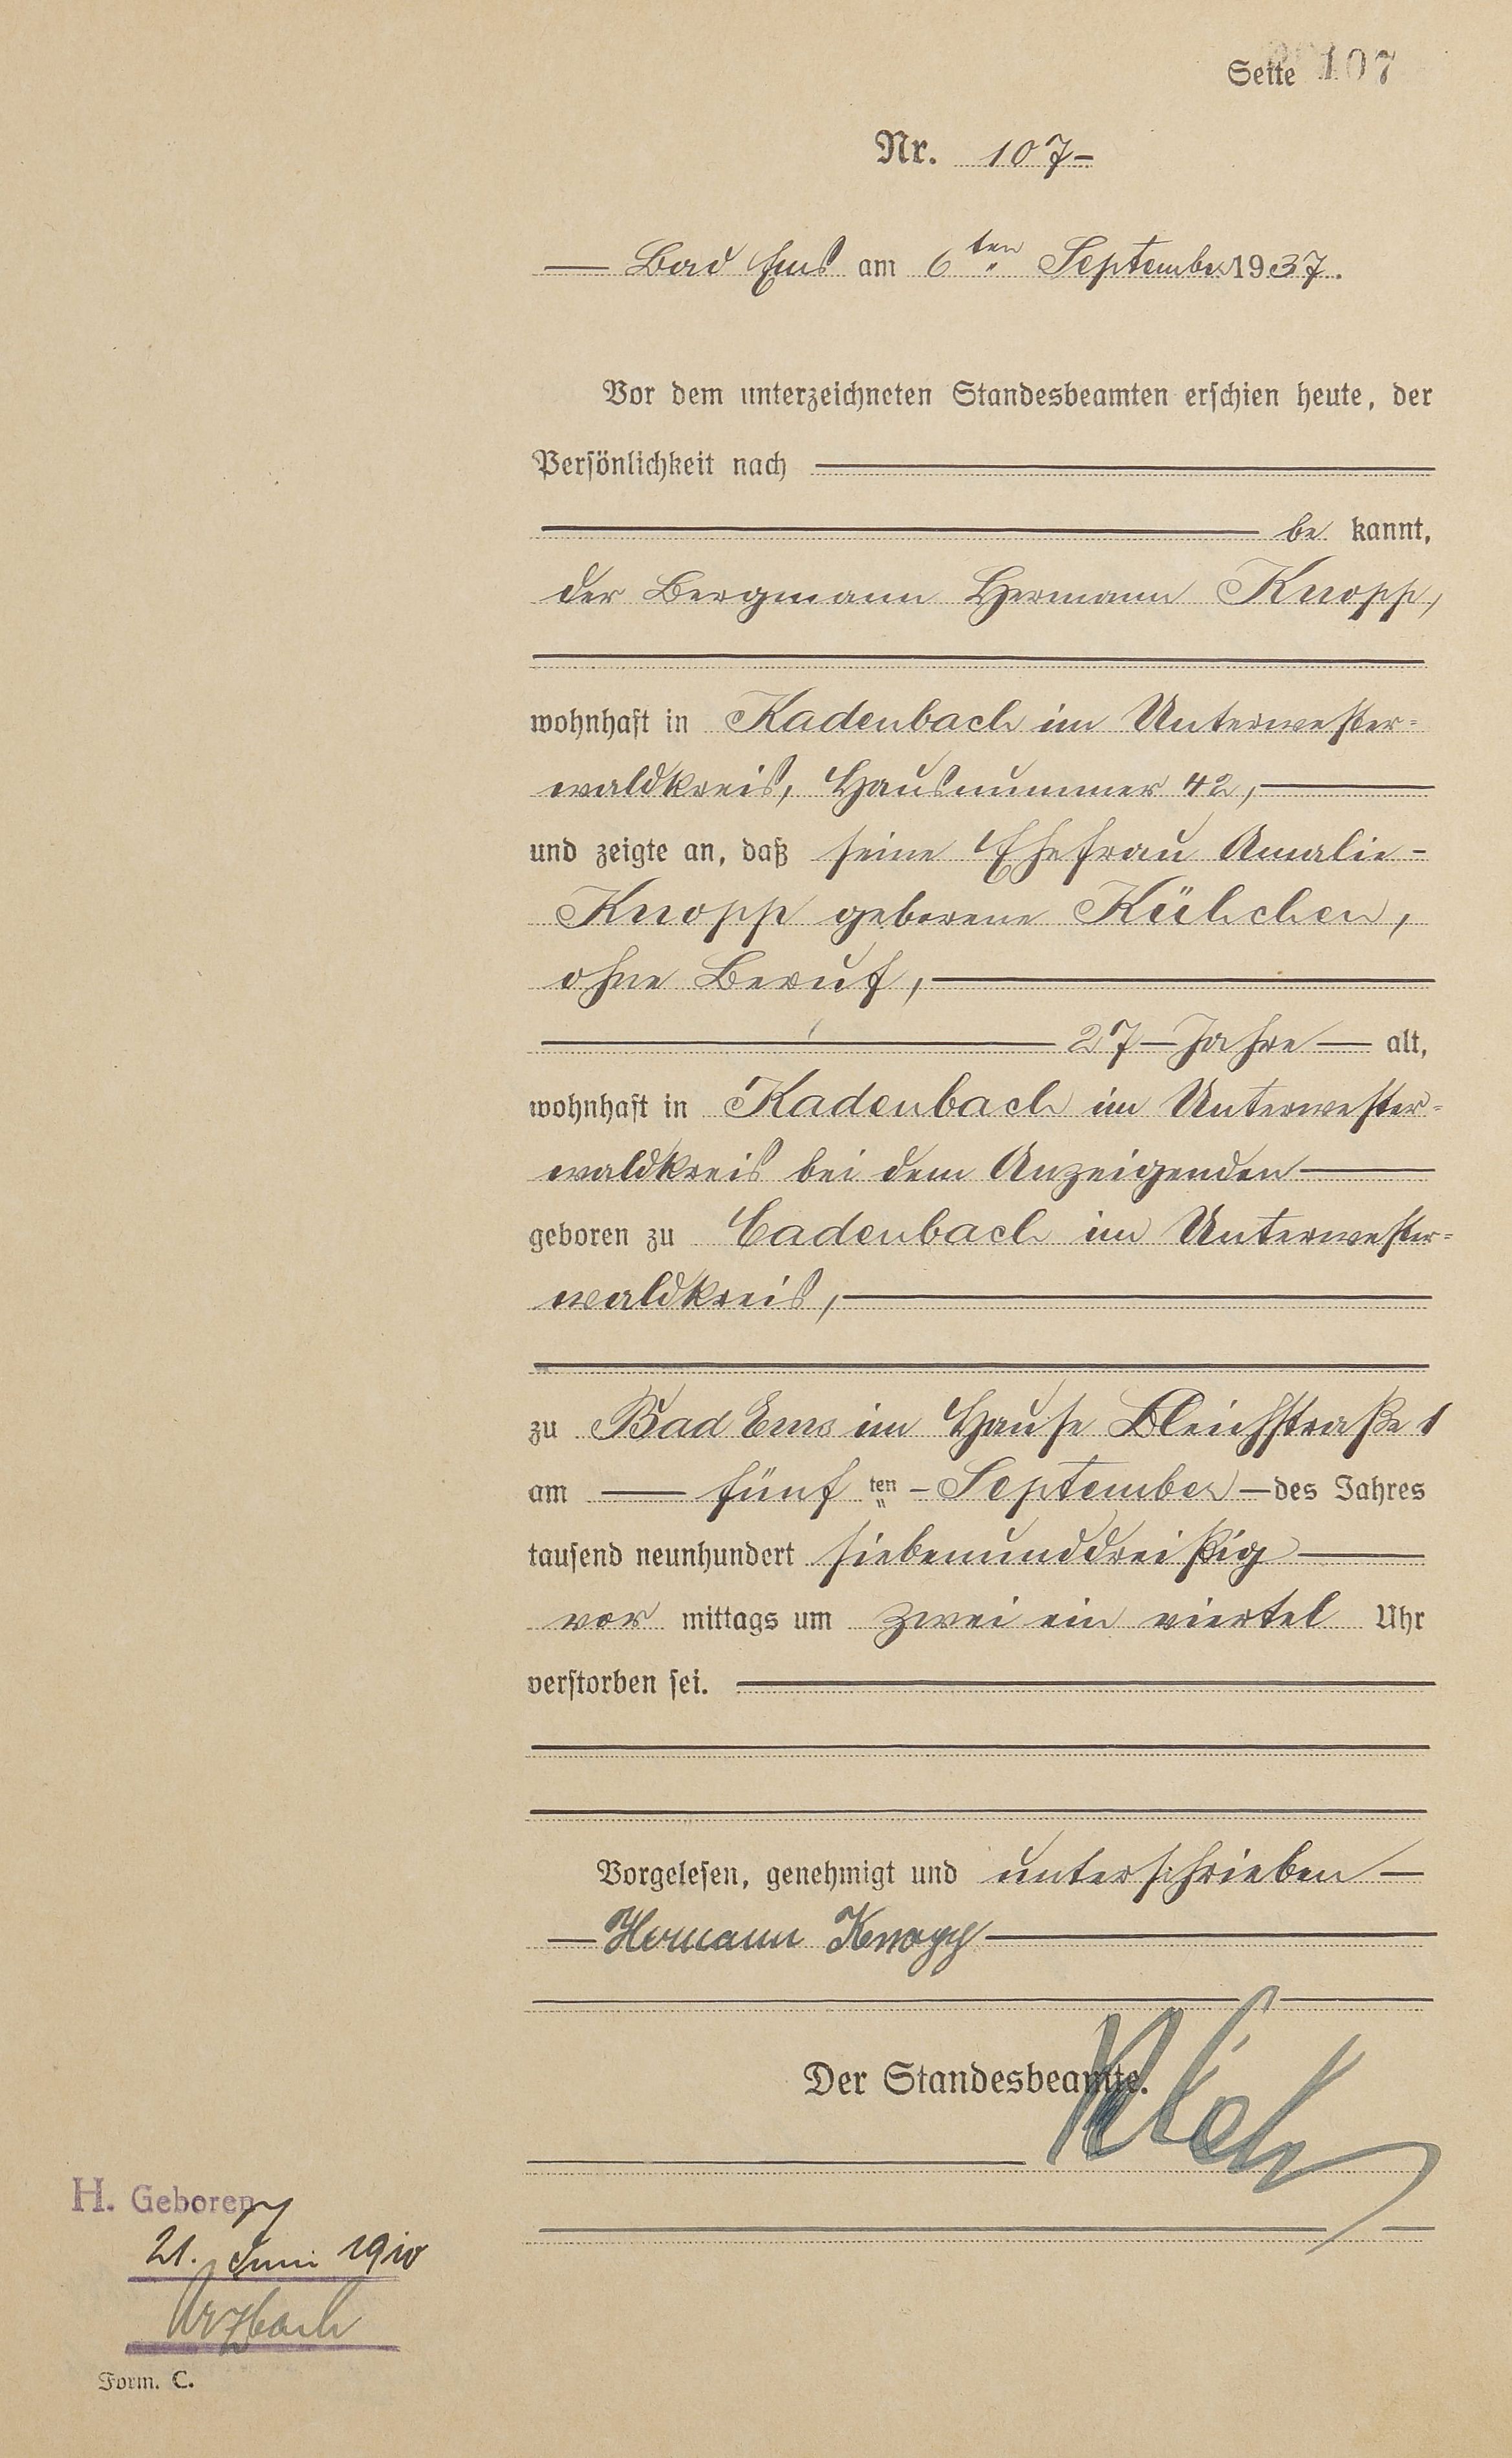 Seite 107
Nr. 107-
— Bad Ems am 6ten September 1937.
Vor dem unterzeichneten Standesbeamten erschien heute, der
Persönlichkeit nach
be kannt,
der Bergmann Hermann Knopp,
wohnhaft in Kadenbach im Unterwester=
waldkreis, Hausnummer 42,
und zeigte an, daß seine Ehefrau Amalie -
Knopp geborene Külchen,
ohne Beruf,
27 - Jahre — alt,
wohnhaft in Kadenbach im Unterwester=
waldkreis bei dem Anzeigenden
geboren zu Cadenbach im Unterwester=
waldkreis,
zu Bad Ems im Hause Bleichstraße 1
am — fünf ten - September — des Jahres
tausend neunhundert siebenunddreißig
vor mittags um zwei ein viertel Uhr
verstorben sei.
Vorgelesen, genehmigt und unterschrieben —
— Hermann Knopp
Der Standesbeamte.
H. Geboren
21. Juni 1910
Arzbach
Form. C.